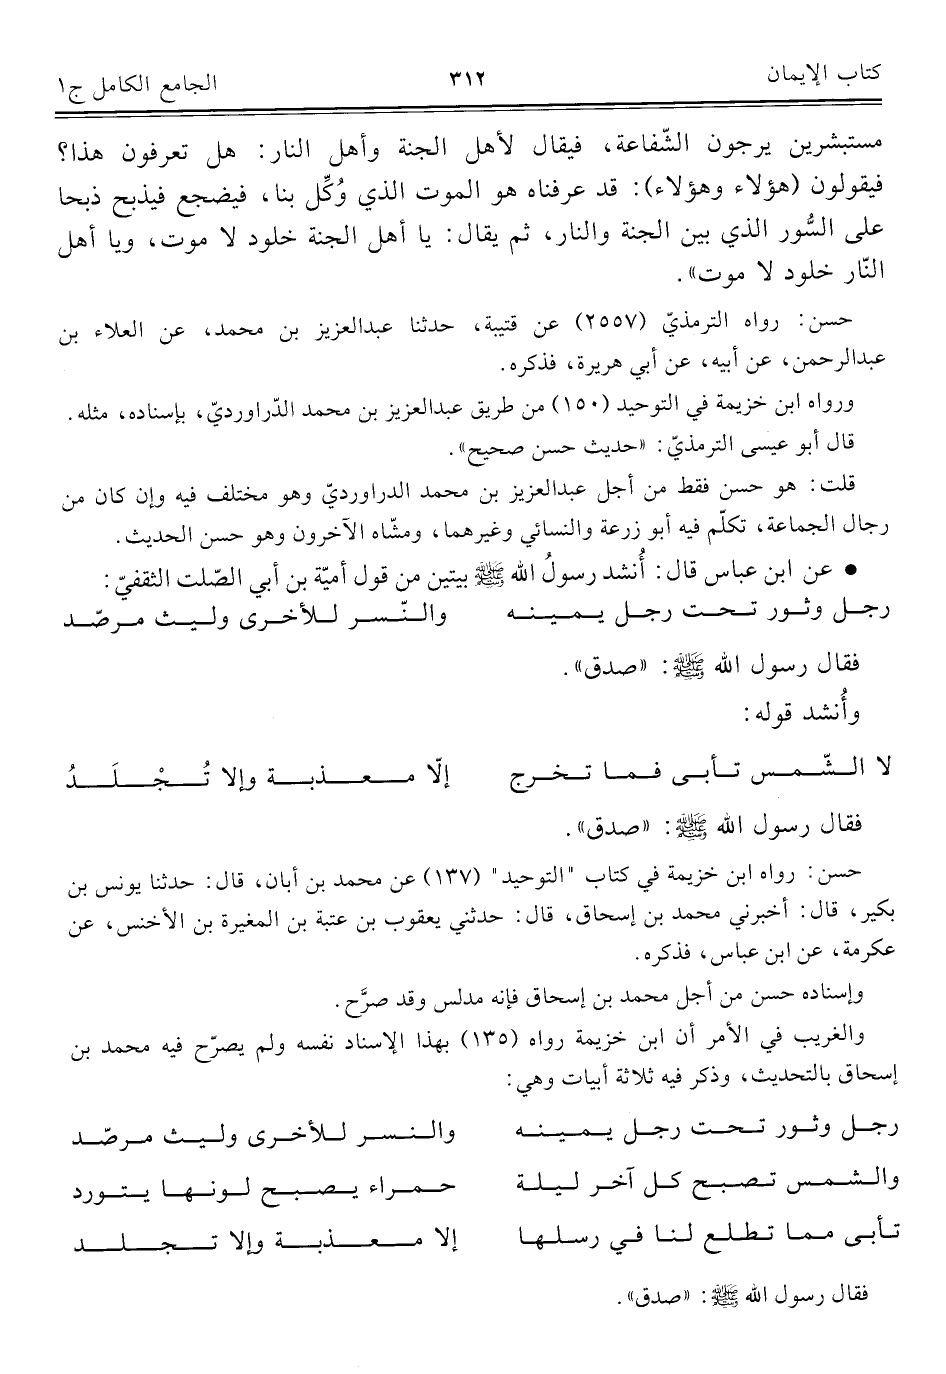 كتاب الإيمان ٣١٢ الجامع الكامل ج١
مستبشرين يرجون الشّفاعة، فيقال لأهل الجنة وأهل النار: هل تعرفون هذا؟
فيقولون (هؤلاء وهؤلاء): قد عرفناه هو الموت الذي وُكِّل بنا، فيضجع فيذبح ذبحا
على السُّور الذي بين الجنة والنار، ثم يقال: يا أهل الجنة خلود لا موت، ويا أهل
النّار خلود لا موت».
حسن: رواه الترمذيّ (٢٥٥٧) عن قتيبة، حدثنا عبدالعزيز بن محمد، عن العلاء بن
عبدالرحمن، عن أبيه، عن أبي هريرة، فذكره.
ورواه ابن خزيمة في التوحيد (١٥٠) من طريق عبدالعزيز بن محمد الدّراورديّ، بإسناده، مثله.
قال أبو عيسى الترمذيّ: «حديث حسن صحيح».
قلت: هو حسن فقط من أجل عبدالعزيز بن محمد الدراورديّ وهو مختلف فيه وإن كان من
رجال الجماعة، تكلّم فيه أبو زرعة والنسائي وغيرهما، ومشّاه الآخرون وهو حسن الحديث.
• عن ابن عباس قال: أُنشد رسولُ الله ﷺ بيتين من قول أميّة بن أبي الصّلت الثقفيّ:
رجل وثور تحت رجل يمينه والنّسر للأخرى وليث مرصّد
فقال رسول الله ﷺ: «صدق».
وأُنشد قوله:
لا الشّمس تأبى فما تخرج إلّا معذبة وإلا تُجْلَدُ
فقال رسول الله ﷺ: «صدق».
حسن: رواه ابن خزيمة في كتاب "التوحيد" (١٣٧) عن محمد بن أبان، قال: حدثنا يونس بن
بكير، قال: أخبرني محمد بن إسحاق، قال: حدثني يعقوب بن عتبة بن المغيرة بن الأخنس، عن
عكرمة، عن ابن عباس، فذكره.
وإسناده حسن من أجل محمد بن إسحاق فإنه مدلس وقد صرَّح.
والغريب في الأمر أن ابن خزيمة رواه (١٣٥) بهذا الإسناد نفسه ولم يصرّح فيه محمد بن
إسحاق بالتحديث، وذكر فيه ثلاثة أبيات وهي:
رجل وثور تحت رجل يمينه والنسر للأخرى وليث مرصّد
والشمس تصبح كل آخر ليلة حمراء يصبح لونها يتورد
تأبى مما تطلع لنا في رسلها إلا معذبة وإلا تجلد
فقال رسول الله ﷺ: «صدق».